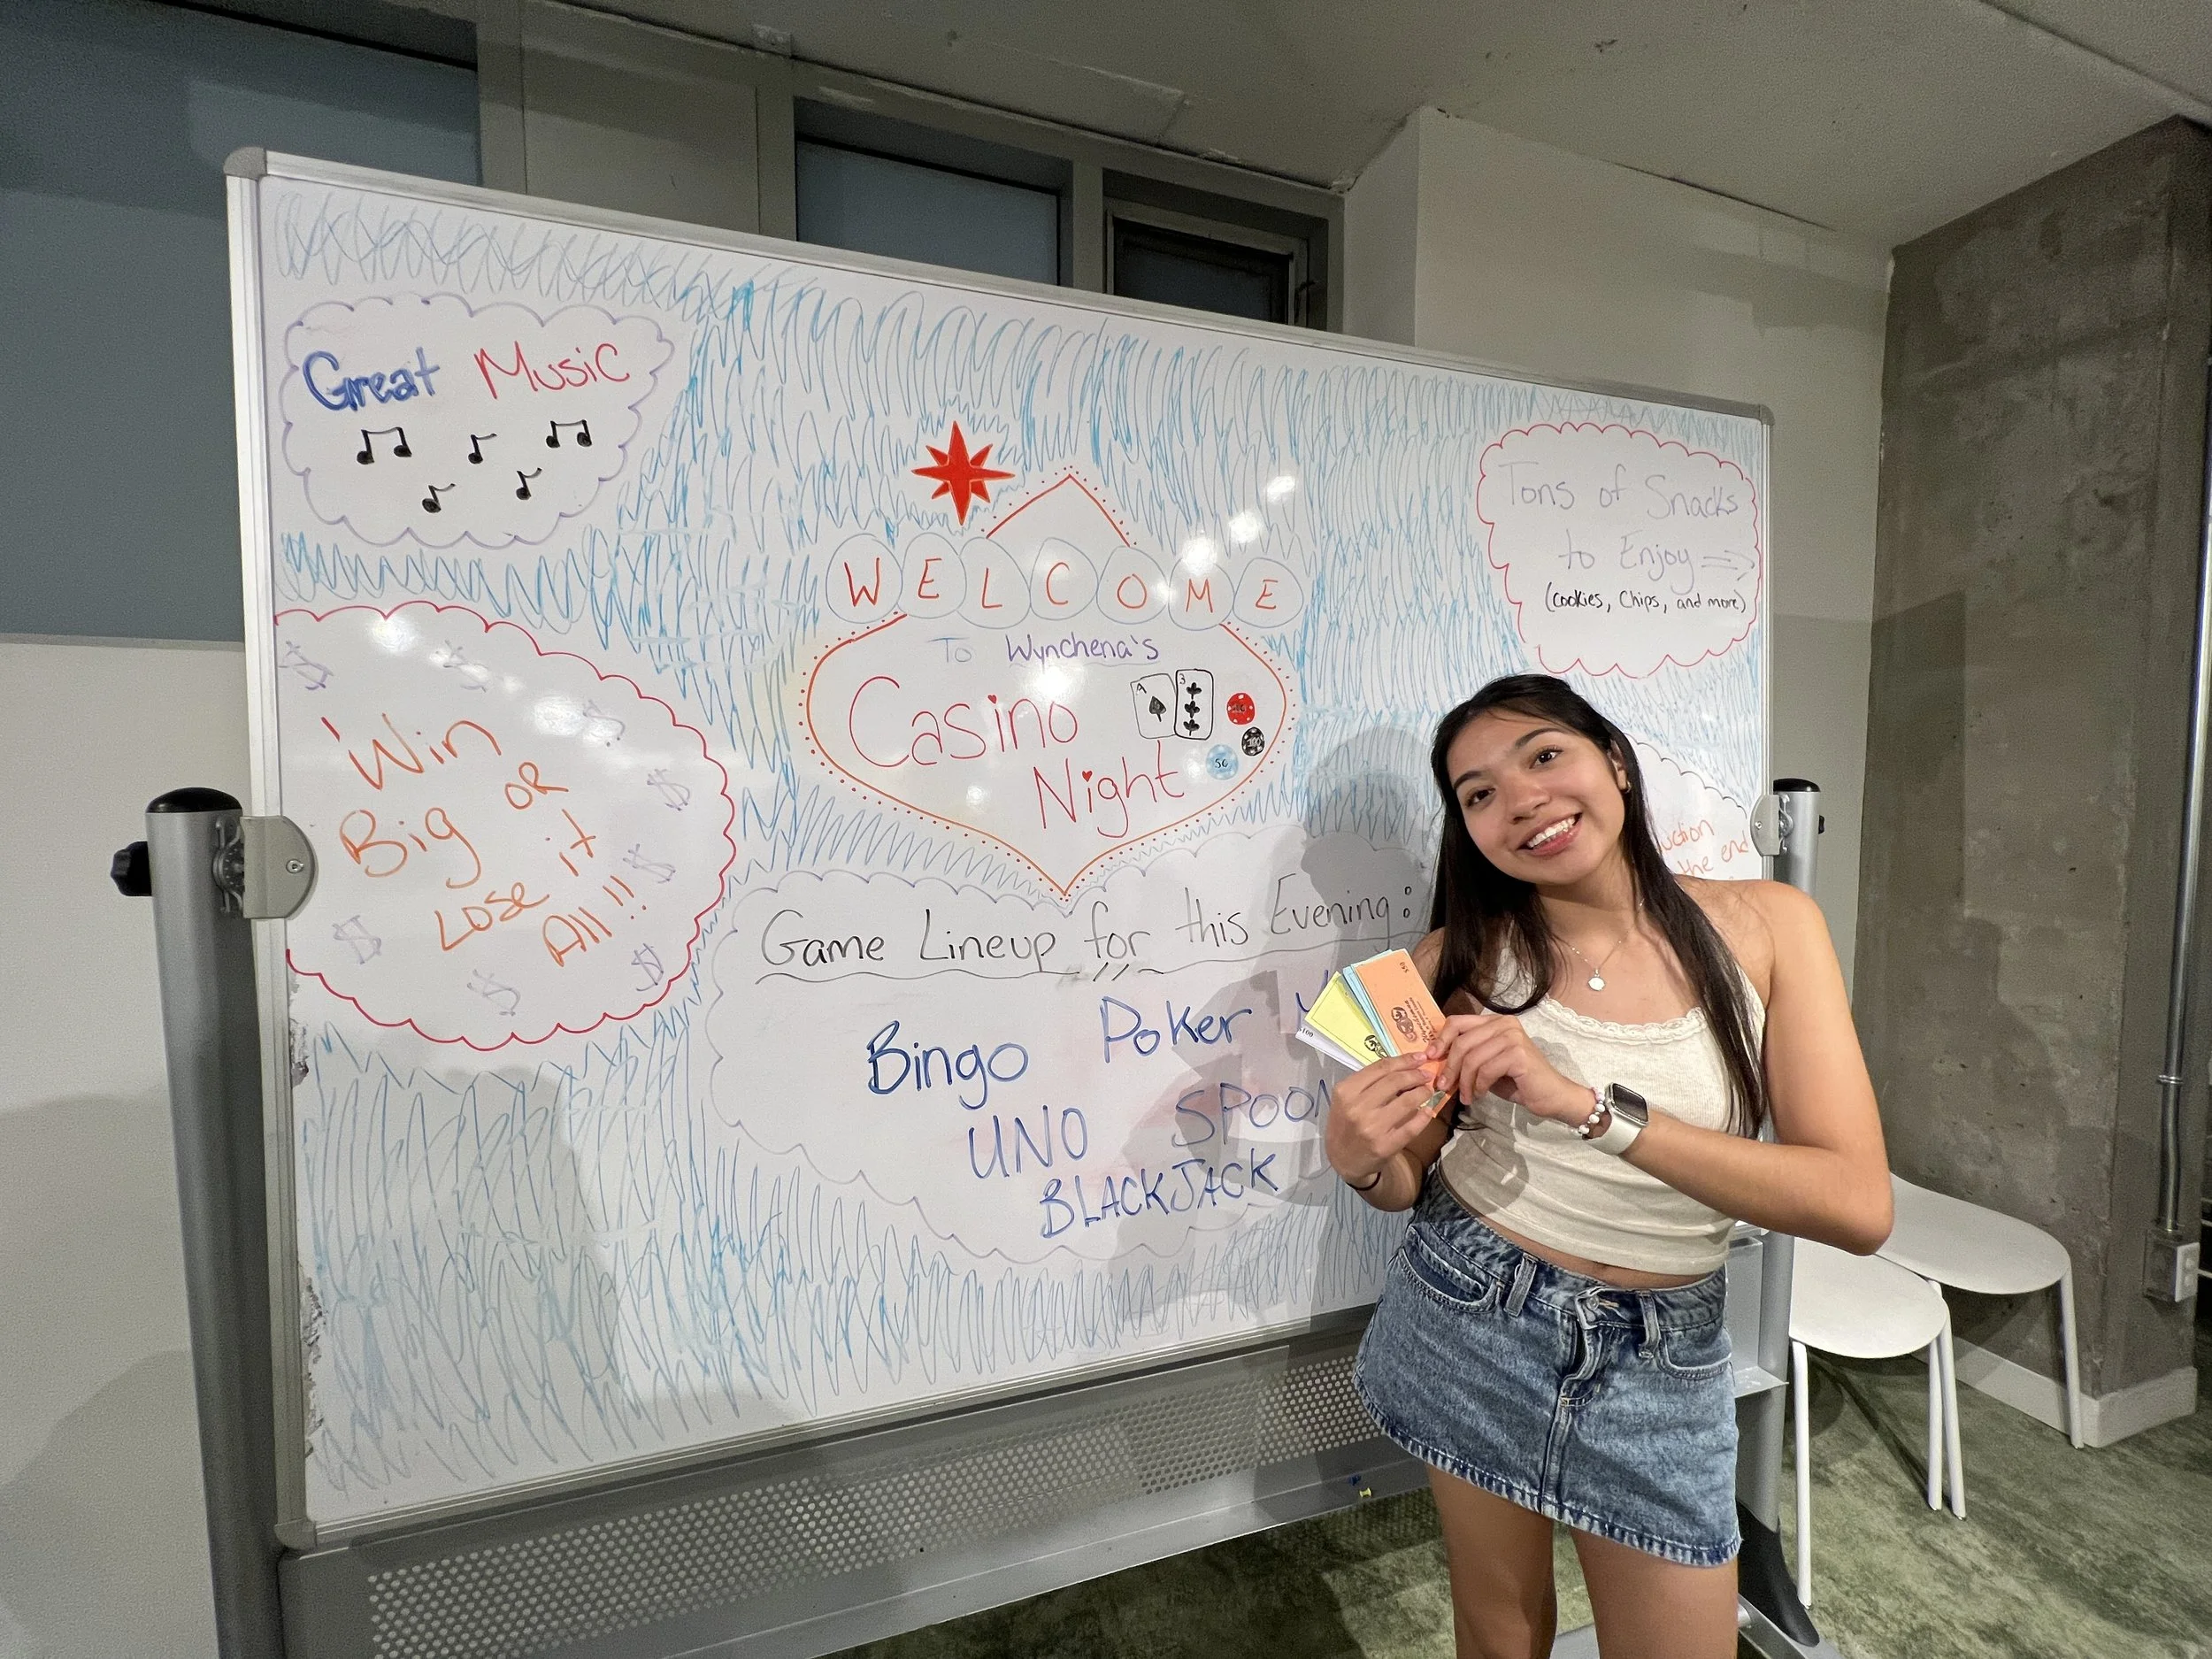 Great Music
WELCOME
To Wynchena's
Casino
Night
A
3
50
Tons of Snacks
to Enjoy
(cookies, Chips, and more)
Win
Big OR
Lose it
All!!
the end
Game Lineup for this Evening:
Bingo Poker
UNO
BLACKJACK
$100